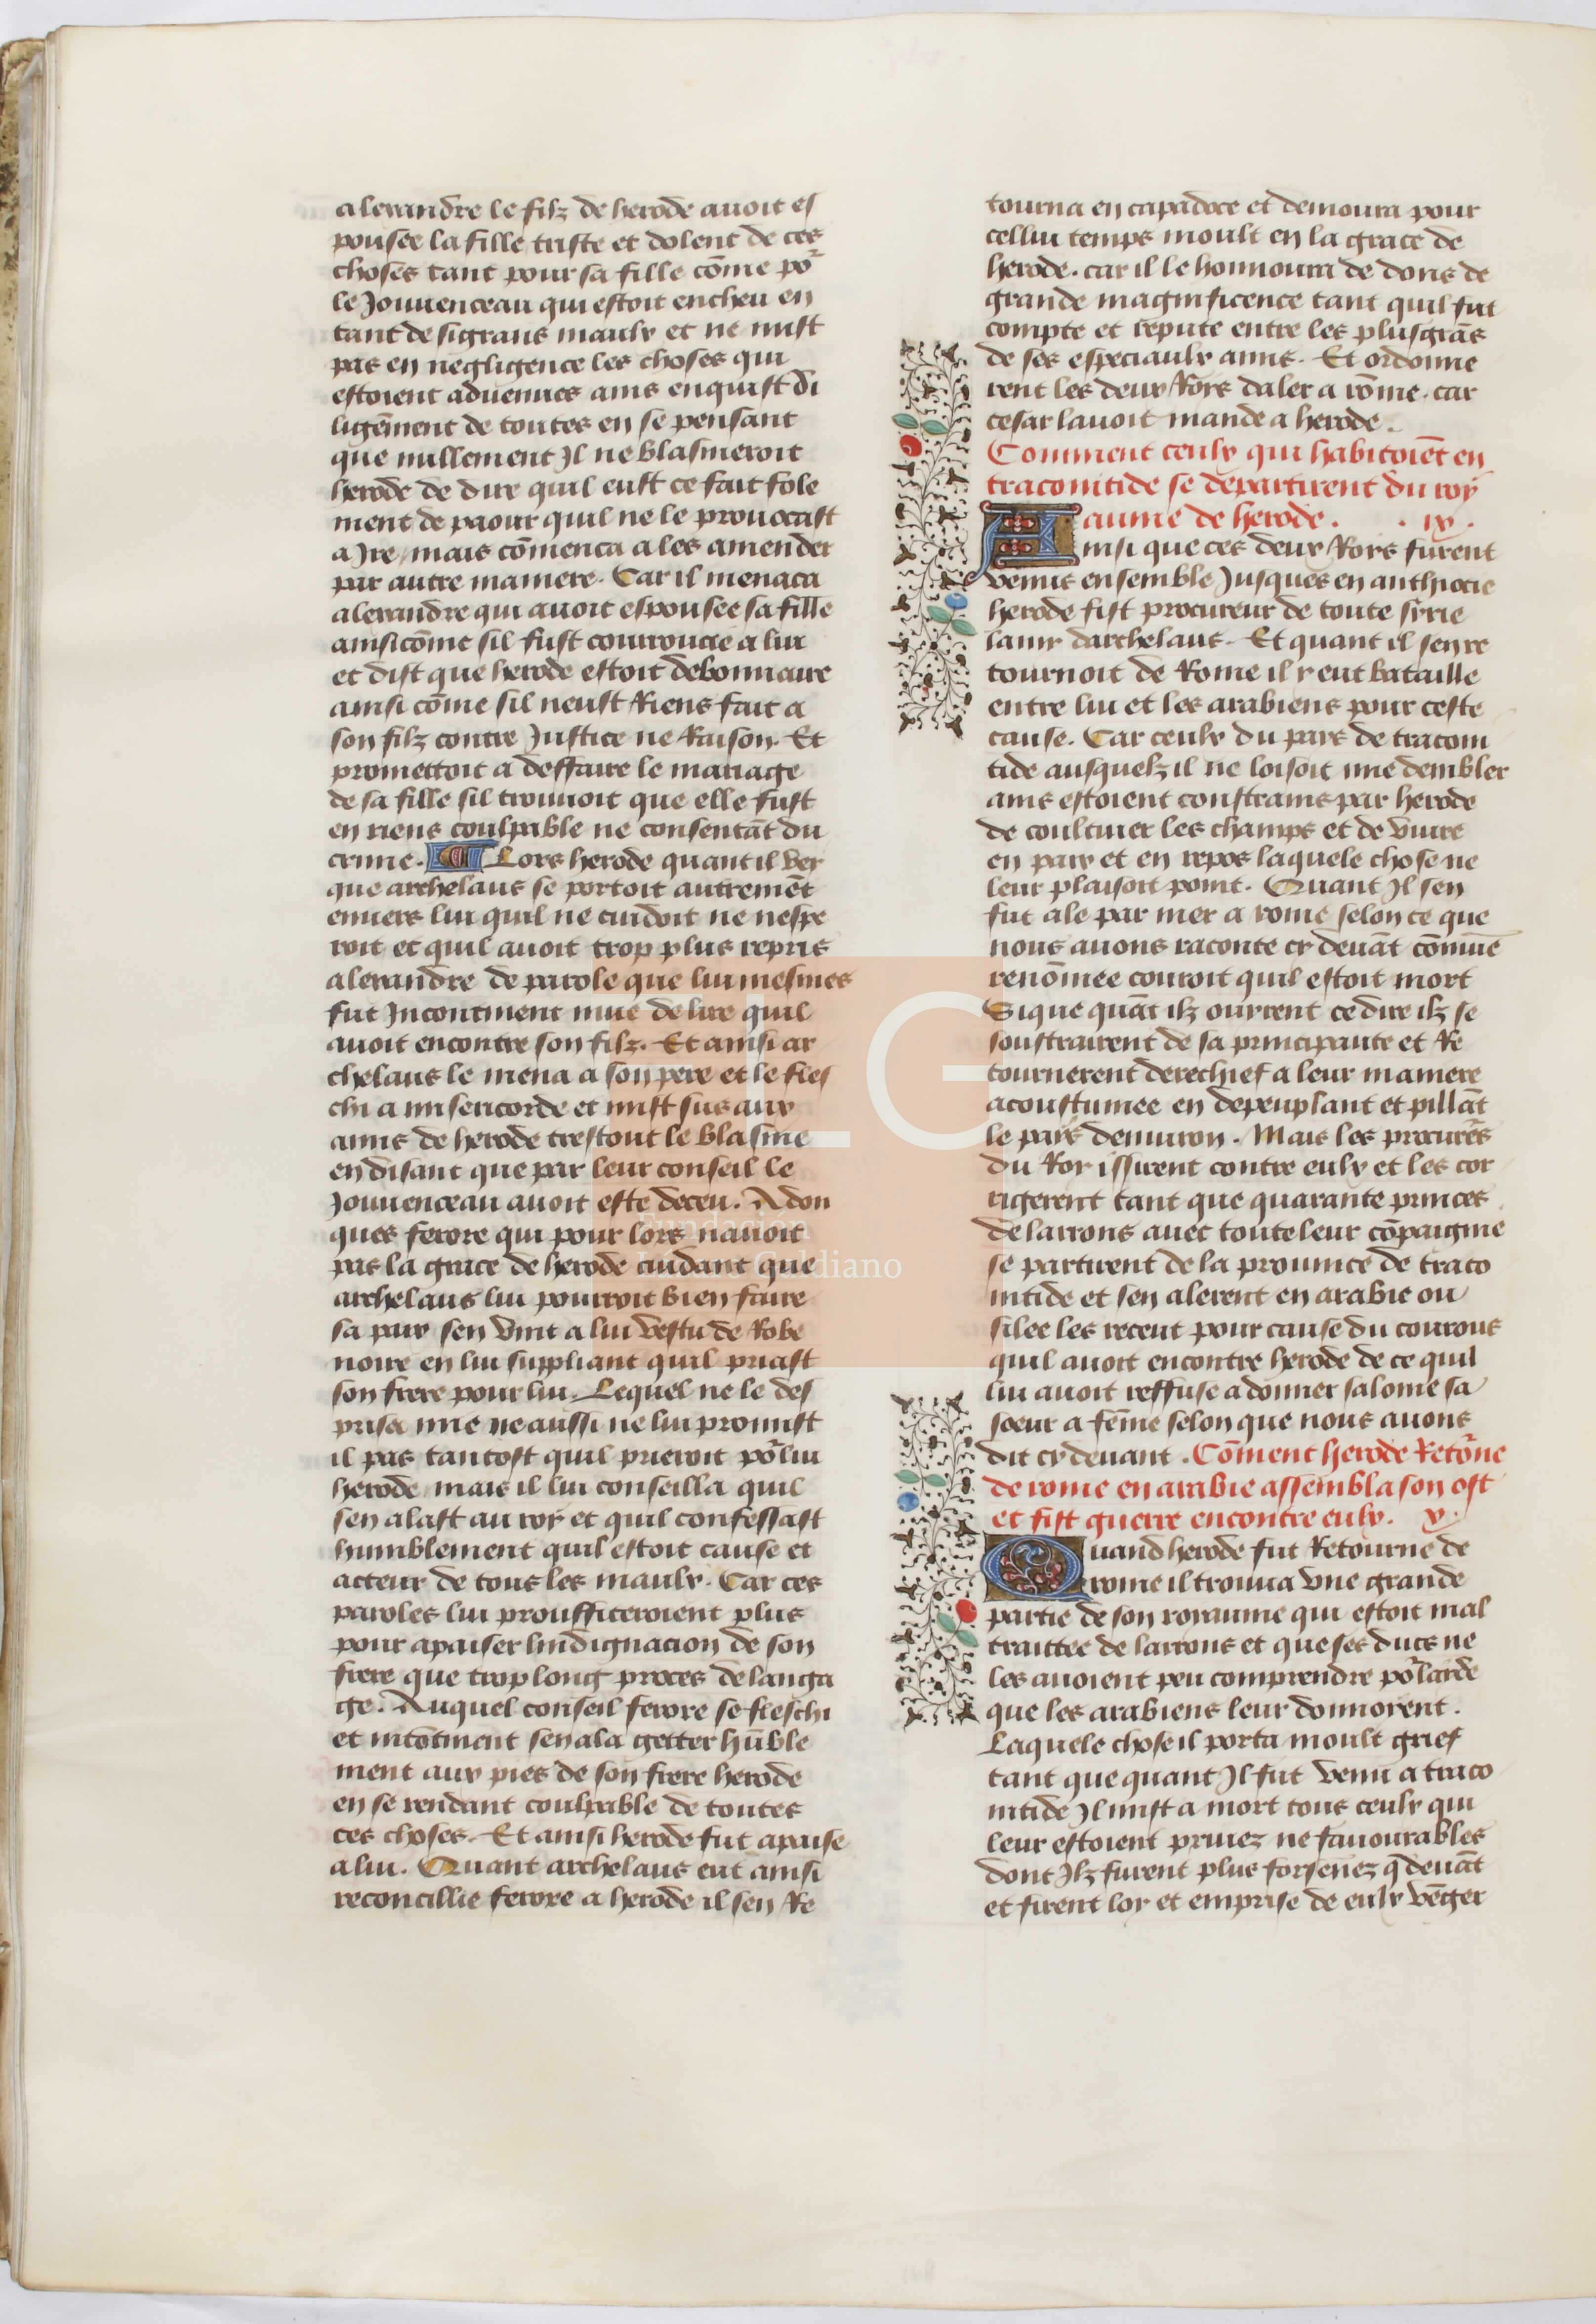 alexandre le filz de herode auoit es
pousee la fille triste et dolent de ces
choses tant pour sa fille cõme po᷑
le Jouuenceau qui estoit encheu en
tant de si grans maulx et ne mist
pas en negligence les choses qui
estoient aduenues ains enquist di
ligẽment de toutes en se pensant
que nullement Jl ne blasmeroit
herode de dire quil eust ce fait fole
ment de paour quil ne le prouocast
a Jre / mais cõmenca a les amender
par autre maniere. Car il menaca
alexandre qui auoit espousee sa fille
ainsi cõme sil fust courroucie a lui
et dist que herode estoit debonnaire
ainsi cõme sil neust Riens fait a
son filz contre Justice ne Raison. Et
promettoit a deffaire le mariage
de sa fille sil trouuoit que elle fust
en riens coulpable ne consentãt du
crime. A Lors herode quant il vey
que archelaus se portoit autremẽt
enuers lui quil ne cuidoit ne nespe
roit et quil auoit trop plus repris
alexandre de parole que lui mesmes
fut Jncontinent mue de lire quil
auoit encontre son filz. Et ainsi ar
chelaus le mena a son pere et le fles
chi a misericorde et mist sus aux
amis de herode trestout le blasme
en disant que par leur conseil le
Jouuenceau auoit este deceu. Adon
ques ferore qui pour lors nauoit
pas la grace de herode cuidant que
archelaus lui pourroit bien faire
sa paix sen vint a lui vestu de Robe
noire en lui suppliant quil priast
son frere pour lui. Lequel ne le des
prisa mie ne aussi ne lui promist
il pas tantost quil prieroit po᷑ lui
herode / mais il lui conseilla quil
sen alast au roy et quil confessast
humblement quil estoit cause et
acteur de tous les maulx. Car ces
paroles lui prouffiteroient plus
pour apaiser lindignacion de son
frere que trop long proces de langa
ge. Auquel conseil ferore se fleschi
et incõtinẽt sen ala getter hũble
ment aux pies de son frere herode
en se rendant coulpable de toutes
ces choses. Et ainsi herode fut apaise
a lui. Quant archelaus eut ainsi
reconcillie ferore a herode il sen Re
tourna en capadoce et demoura pour
cellui temps moult en la grace de
herode. car il le honnoura de dons de
grande magnificence tant quil fut
compte et repute entre les plus grãs
de ses especiaulx amis. Et ordonne
rent les deux Roys daler a rõme. car
cesar lauoit mande a herode.
Comment ceulx qui habitoiẽt en
traconitide se departirent du roy
aume de herode. . ix.
Ainsi que ces deux Roys furent
venus ensemble Jusques en anthioce
herode fist procureur de toute syrie
lamy darchelaus. Et quant il sen re
tournoit de Rome il y eut bataille
entre lui et les arabiens pour ceste
cause. Car ceulx du pays de traconi
tide ausquelz il ne loisoit mie dembler
ains estoient constrains par herode
de coultiuer les champs et de viure
en paix et en repos laquele chose ne
leur plaisoit point. Quant Jl sen
fut ale par mer a rome selon ce que
nous auons raconte cy deuãt cõmũe
renõmee couroit quil estoit mort
Sique quãt ilz ouyrent ce dire ilz se
soustrairent de sa principaute et Re
tournerent derechief a leur maniere
acoustumee en depeuplant et pillãt
le pays denuiron. Mais les procure᷑s
du Roy issirent contre eulx et les cor
rigerent tant que quarante princes
de larrons auec toute leur cõpaignie
se partirent de la prouince de traco
nitide et sen alerent en arabie ou
silee les receut pour cause du courous
quil auoit encontre herode de ce quil
lui auoit reffuse a donner salome sa
soeur a fẽme selon que nous auons
dit cy deuant. Cõment herode Reto᷑ne
de rome en arabie assembla son ost
et fist guerre encontre eulx. x.
Quand herode fut Retourne de
rome il trouua vne grande
partie de son royaume qui estoit mal
traittee de larrons et que ses ducs ne
les auoient peu comprendre po᷑ laide
que les arabiens leur donnoient.
Laquele chose il porta moult grief
tant que quant Jl fut venu a traco
nitide Jl mist a mort tous ceulx qui
leur estoient priuez ne fauourables
dont Jlz furent plus forsenez q̃ deuãt
et firent loy et emprise de eulx vẽger
FLG
Fundación
Lázaro Galdiano